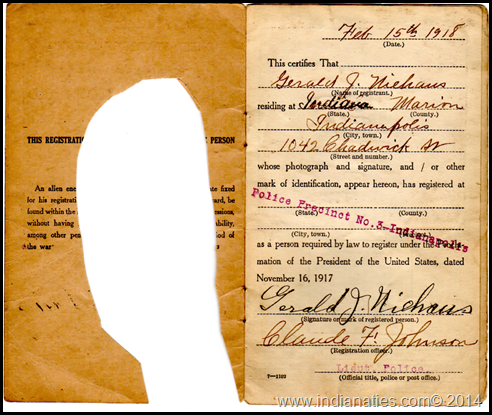 THIS REGISTRATI PERSON
An alien ene ate fixed
for his registrati rd, be
found within the ssions,
without having bility,
among other pe od of
the war
Feb 15th 1918
(Date.)
This certifies That
Gerald J. Niehaus
(Name of registrant.)
residing at Indiana Marion
(State.) (County.)
Indianapolis
(City, town.)
1042 Chadwick St
(Street and number.)
whose photograph and signature, and / or other
mark of identification, appear hereon, has registered at
Police Precinct No. 3-Indianapolis
(State.) (County.)
(City, town.)
as a person required by law to register under the
mation of the President of the United States, dated
November 16, 1917
Gerald J Niehaus
(Signature or mark of registered person.)
Claude F. Johnson
(Registration officer.)
Lieut Police
7—1103 (Official title, police or post office.)
www.indianaties.com© 2014